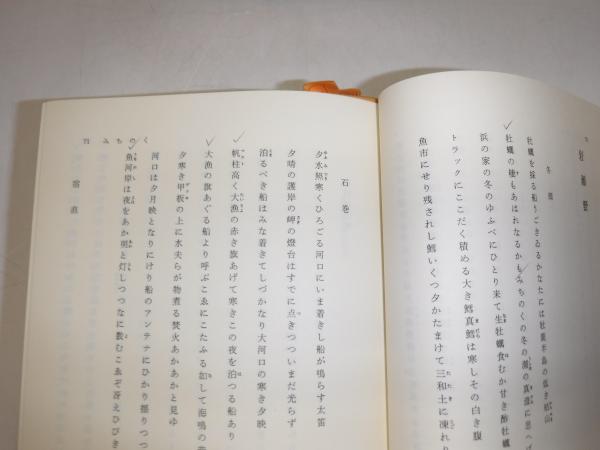 牡蠣を採る船うごきゐるかなたには牡鹿半島の低き枯山
牡蠣の棲もあはれなるかもみちのくの冬の潮の真澄に思へ
浜の家の冬のゆふべにひとり来て生牡蠣食むか甘き酢牡蠣
トラックにここだく積める大き鱈真鱈は寒しその白き腹
魚市にせり残されし鱈いくつ夕かたまけて三和土に凍れり
石巻
夕水照寒くひろごる河口にいま着きし船が鳴らす太笛
夕晴の護岸の岬の燈台はすでに点きつついまだ光らず
泊るべき船はみな着きてしづかなり大河口の寒き夕映
帆柱高く大漁の赤き旗あげて寒きこの夜を泊つる船あり
大漁の旗あぐる船より呼ぶこゑにこたふる如して海鳴の
夕寒き甲板の上に水夫らが物煮る焚火あかあかと見ゆ
河口は夕月映となりにけり船のアンテナにひかり揺りつつ
魚河岸は夜をあか明と灯しつつなに数むこゑぞ冴えひびき
宿直
みちのく